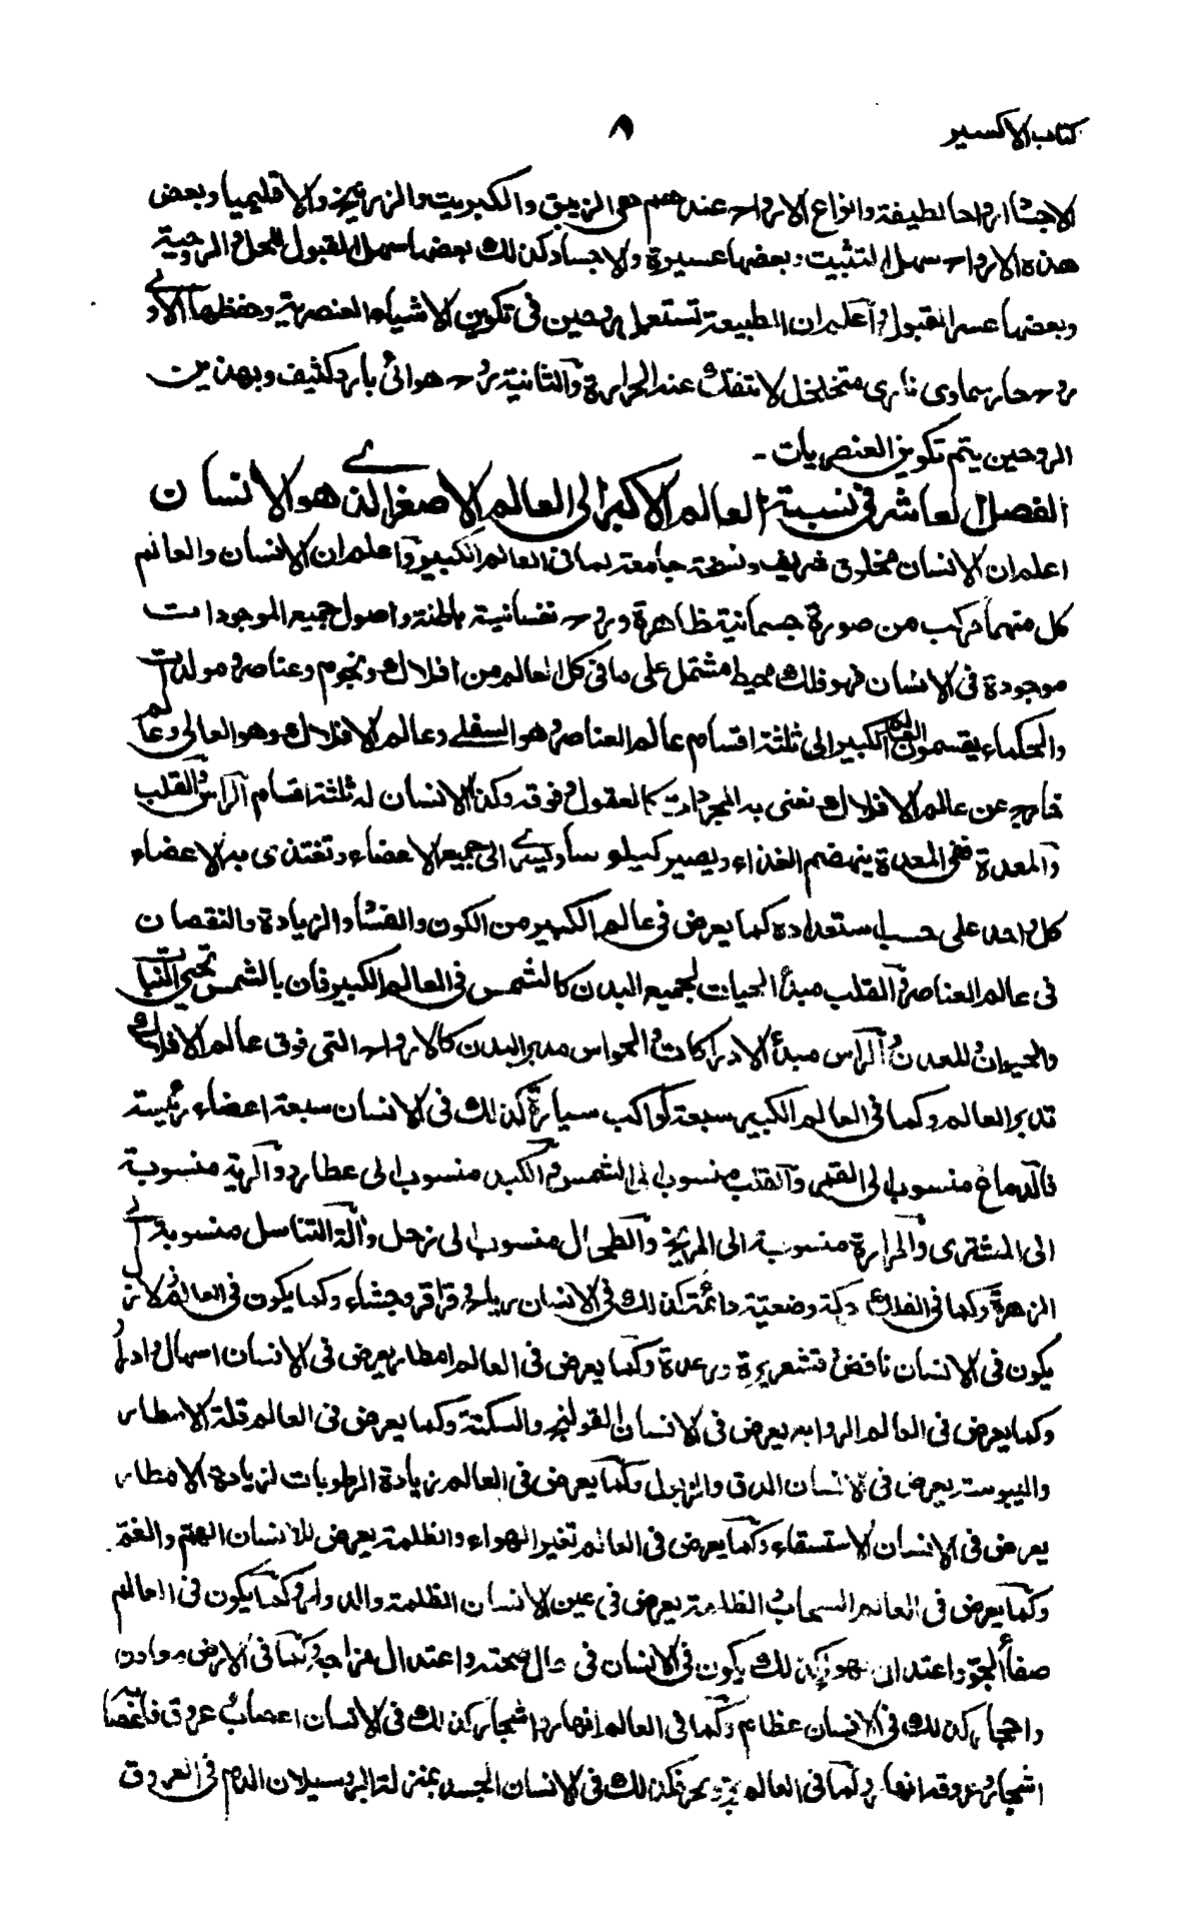 كتاب الاكسير
٨
الاجساد ارواحا لطيفة وانواع الارواح عندهم هى الزيبق والكبريت والزرنيخ والاقليميا وبعض
هذه الارواح سهل التثبيت وبعضها عسيرة والاجساد كذلك بعضها سهل القبول للحل والروحية
وبعضها عسر القبول واعلم ان الطبيعة تستعمل روحين فى تكوين الاشياء العنصرية وحفظها الاولے
روح حار سماوى نارى متخلخل لا تنفك عند الحرارة والثانية روح هوائى بارد كثيف وبهذين
الروحين يتم تكوين العنصريات -
الفصل العاشر فى نسبة العالم الاكبر الى العالم الاصغر الذے هو الانسان
اعلم ان الانسان مخلوق شريف ونسخة جامعة لما فى العالم الكبير واعلم ان الانسان والعالم
كل منهما مركب من صورة جسمانية ظاهرة وروح نفسانية باطنة واصول جميع الموجودات
موجودة فى الانسان فهو فلك محيط مشتمل على ما فى كل العالم من افلاك ونجوم وعناصر ومولدات
والحكماء يقسمون العالم الكبير الى ثلثة اقسام عالم العناصر وهو السفلے وعالم الافلاك وهو العالى وعالم
خارج عن عالم الافلاك نعنى به المجردات كالعقول وفوقه وكذا الانسان له ثلثة اقسام الراس والقلب
والمعدة ففى المعدة ينهضم الغذاء ويصير كيلوسا ويسرے الى جميع الاعضاء وتغتذى به الاعضاء
كل واحد على حسب استعداده كما يعرض فى عالم الكبير من الكون والفساد والزيادة والنقصان
فى عالم العناصر والقلب مبدأ الحيات لجميع البدن كالشمس فى العالم الكبير فان بالشمس تحيى النبات
والحيوان والمعدن والراس مبدأ الادراكات والحواس مدبر البدن كالارواح التى فوق عالم الافلاك
تدبر العالم وكما فى العالم الكبير سبعة كواكب سيارة كذلك فى الانسان سبعة اعضاء رئيسة
فالدماغ منسوب الى القمر والقلب منسوب الى الشمس والكبد منسوب الى عطارد والرية منسوبة
الى المشترى والمرارة منسوبة الى المريخ والطحال منسوب الى زحل وآلة التناسل منسوبة الے
الزهرة وكما فى الفلك حركة وضعية دائمة كذلك فى الانسان رياح وقراقر وجشاء وكما يكون فى العالم زلازل
يكون فى الانسان نافض وقشعريرة ورعدة وكما يعرض فى العالم امطار يعرض فى الانسان اسهال وادرار
وكما يعرض فى العالم الروابع يعرض فى الانسان القولنج والسكتة وكما يعرض فى العالم قلة الامطار
واليبوسة يعرض فى الانسان الدق والذبول وكما يعرض فى العالم زيادة الرطوبات لزيادة الامطار
يعرض فى الانسان الاستسقاء وكما يعرض فى العالم تغير الهواء والظلمة يعرض للانسان الهم والغم
وكما يعرض فى العالم السحاب والظلمة يعرض فى عين الانسان الظلمة والدوار وكما يكون فى العالم
صفاء الجو واعتدال الهواء كذلك يكون فى الانسان فى حال صحته واعتدال مزاجه وكما فى الارض معادن
واحجار كذلك فى الانسان عظام وكما فى العالم انهار واشجار كذلك فى الانسان اعصاب وعروق فاعصابه
اشجار وعروقه انهار وكما فى العالم بر وبحر فكذلك فى الانسان الجسد بمنزلة البر وسيلان الدم فى العروق